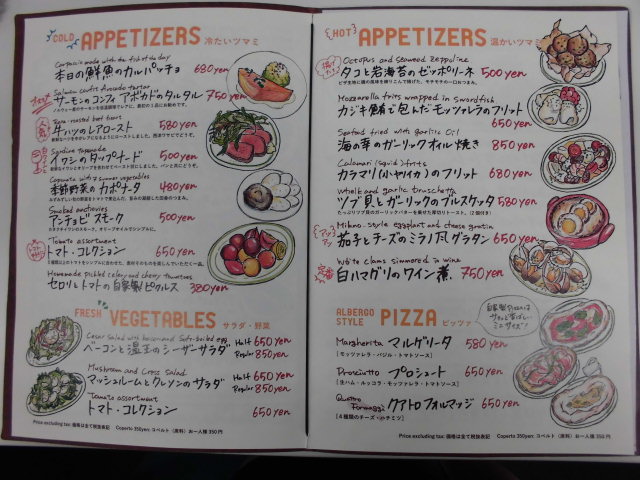 COLD APPETIZERS 冷たいツマミ
Carpaccio made with the fish of the day
本日の鮮魚のカルパッチョ 680yen
Salmon confit Avocado tartar
サーモンのコンフィ アボカドのタルタル 750yen
人気
roasted beef
レアロースト 580yen
Sardine tapenade
イワシのタップナード 500yen
Caponata with summer vegetables
季節野菜のカポナータ 480yen
Smoked anchovies
アンチョビスモーク 500yen
Tomato assortment
トマト・コレクション 650yen
Homemade pickled celery and cherry tomatoes
セロリとトマトの自家製ピクルス 380yen
FRESH VEGETABLES サラダ・野菜
Cesar salad with bacon and soft-boiled egg
ベーコンと温玉のシーザーサラダ Half 650yen
Regular 850yen
Mushroom and Cress Salad
マッシュルームとクレソンのサラダ Half 650yen
Regular 850yen
Tomato assortment
トマト・コレクション 650yen
Price excluding tax: 価格は全て税抜表記 Coperto 350yen: コペルト（席料）お一人様 350円
HOT APPETIZERS 温かいツマミ
Octopus and seaweed zeppoline
タコと岩海苔のゼッポリーネ 500yen
Mozzarella frits wrapped in swordfish
カジキ鮪で包んだモッツァレラのフリット 680yen
Seafood fried with garlic Oil
海の幸のガーリックオイル焼き 850yen
Calamari (squid) frits
カラマリ(小ヤリイカ)のフリット 680yen
Whelk and garlic bruschetta
ツブ貝とガーリックのブルスケッタ 580yen
Milano-style eggplant and cheese gratin
茄子とチーズのミラノ風グラタン 650yen
White clams simmered in wine
定番
白ハマグリのワイン煮 750yen
ALBERGO STYLE PIZZA ピッツァ
自家製Pizzaは
ミニサイズ!
Margherita マルゲリータ 580yen
[モッツァレラ・バジル・トマトソース]
Prosciutto プロシュート 650yen
[生ハム・ルッコラ・モッツァレラ・トマトソース]
Quattro Formaggi クアトロフォルマッジ 650yen
[4種類のチーズ・ハチミツ]
Price excluding tax: 価格は全て税抜表記 Coperto 350yen: コペルト（席料）お一人様 350円